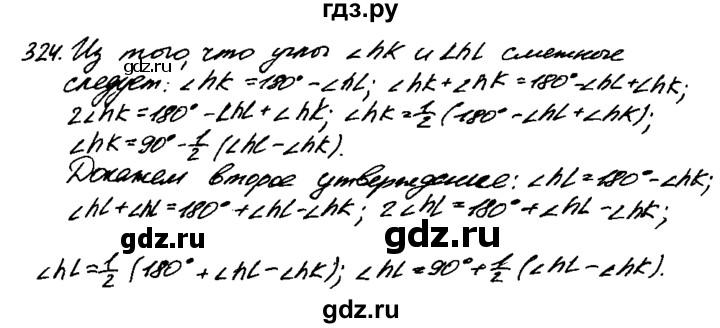 гдз.ру
324. Из того, что углы ∠hK и ∠hL смежные
следует: ∠hK = 180° - ∠hL; ∠hK + ∠hK = 180° - ∠hL + ∠hK;
2∠hK = 180° - ∠hL + ∠hK; ∠hK = 1/2 (180° - ∠hL + ∠hK);
∠hK = 90° - 1/2 (∠hL - ∠hK).
Докажем второе утверждение: ∠hL = 180° - ∠hK;
∠hL + ∠hL = 180° + ∠hL - ∠hK; 2∠hL = 180° + ∠hL - ∠hK;
gdz.ru gdz.ru
∠hL = 1/2 (180° + ∠hL - ∠hK); ∠hL = 90° + 1/2 (∠hL - ∠hK).
gdz.ru